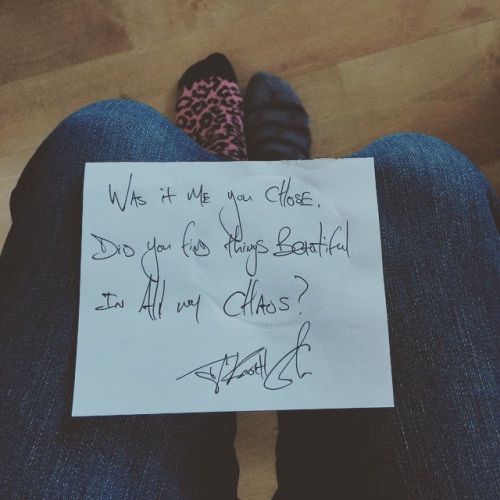 Was it me you CHOSE.
DiD you find things Beautiful
IN All my CHAOS?